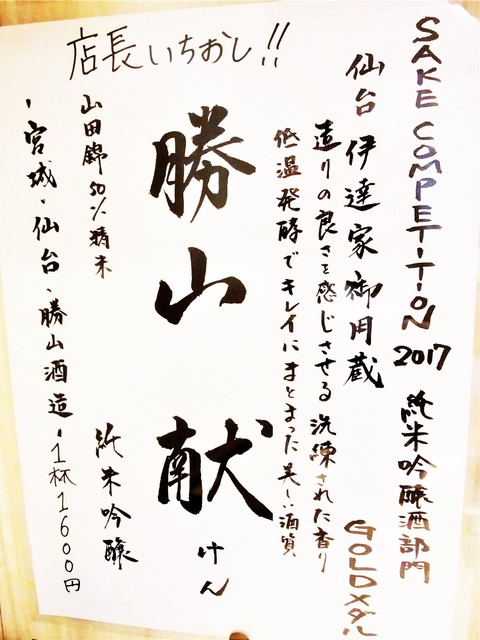 店長いちおし!!
SAKE COMPETITION 2017 純米吟醸酒部門
GOLDメダル
仙台 伊達家御用蔵
造りの良さを感じさせる 洗練された香り
低温発酵でキレイにまとまった美しい酒質
勝山 献
けん
純米吟醸
山田錦50%精米
・宮城・仙台・勝山酒造・1杯1600円